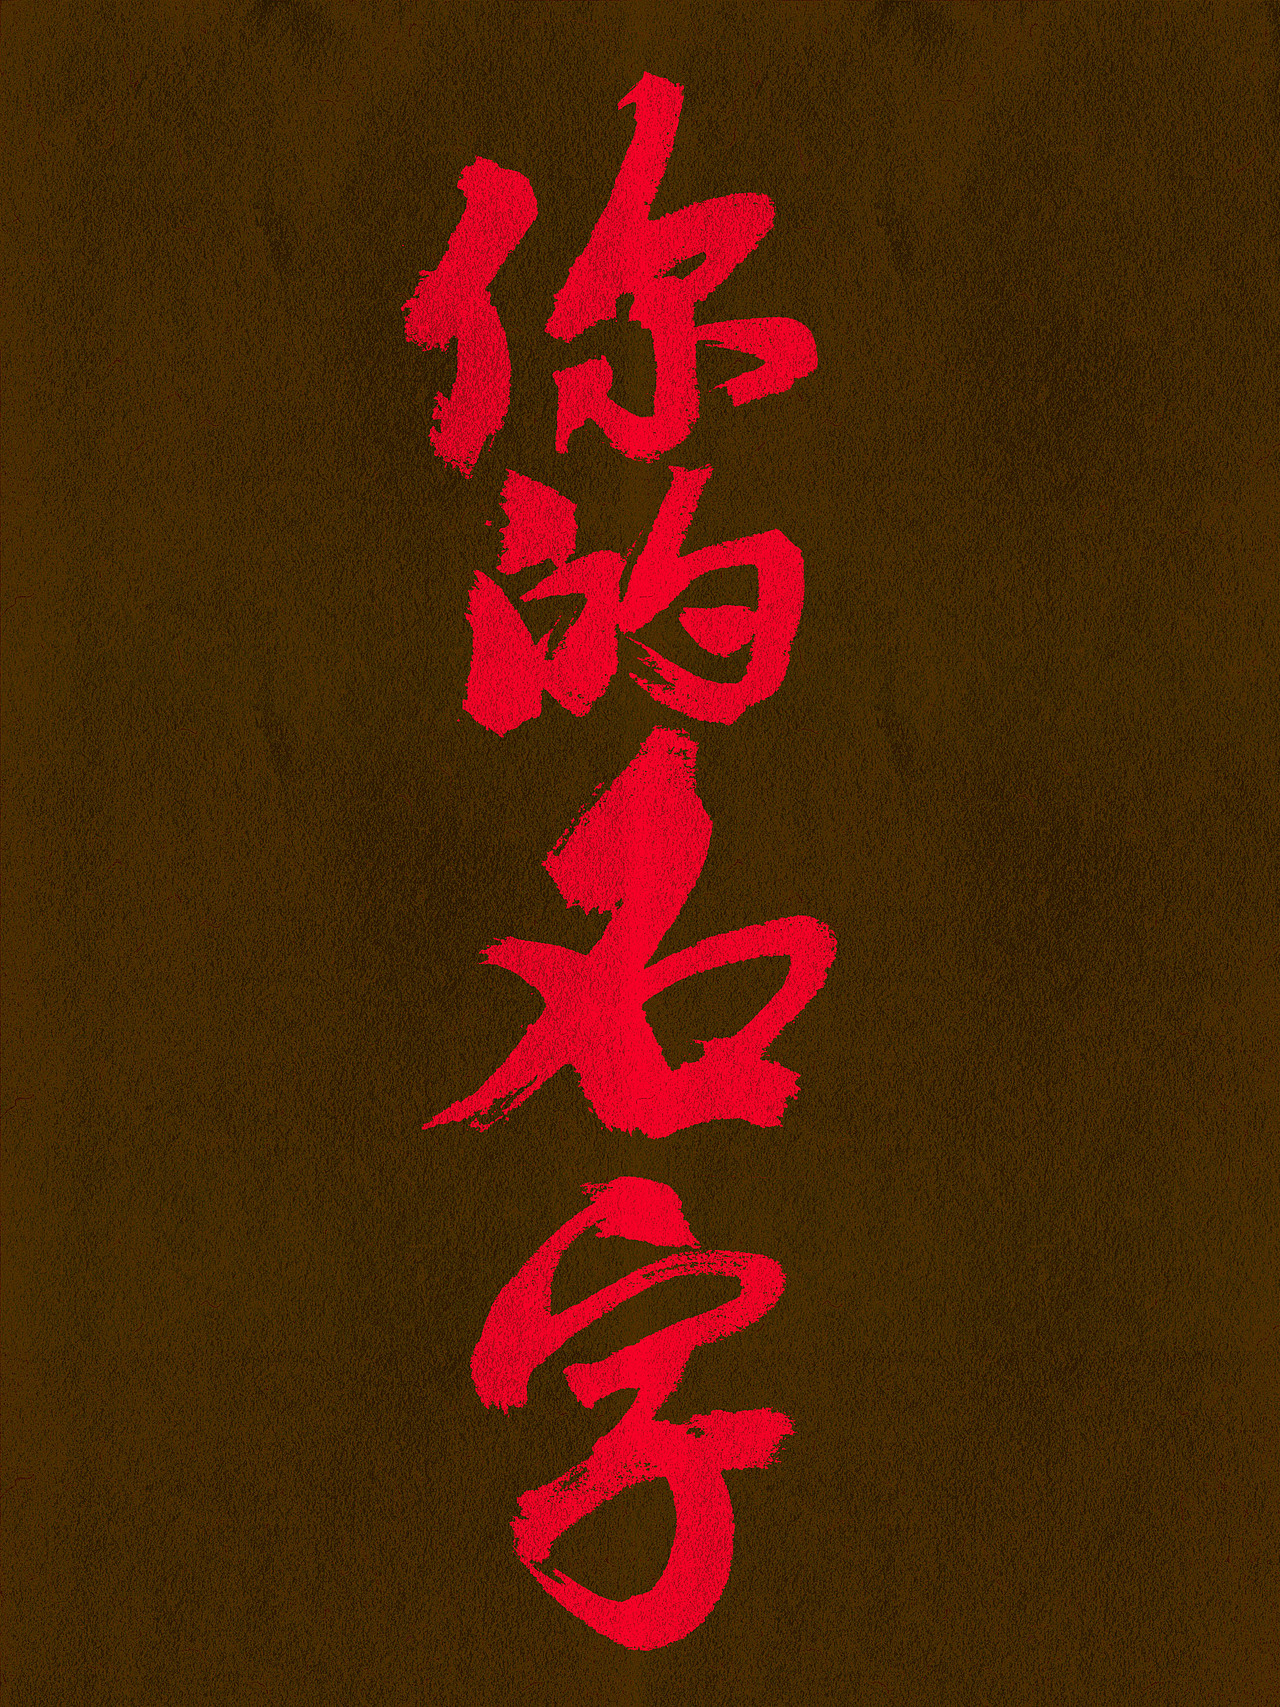 你的名字